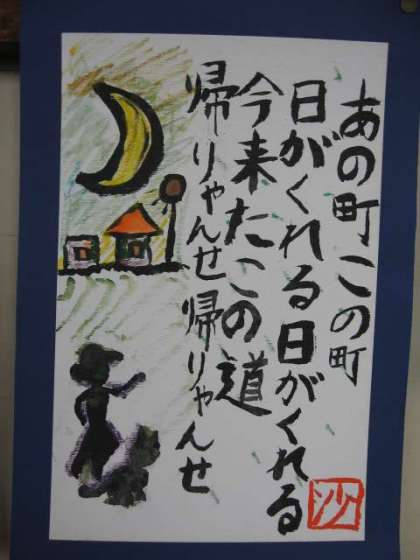 あの町この町
日がくれる日がくれる
今来たこの道
帰りゃんせ帰りゃんせ
沙